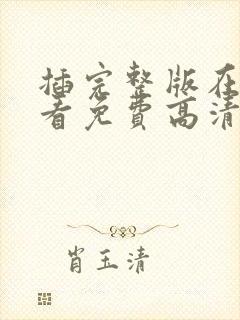 插完整版在
看免费高清
肖玉清